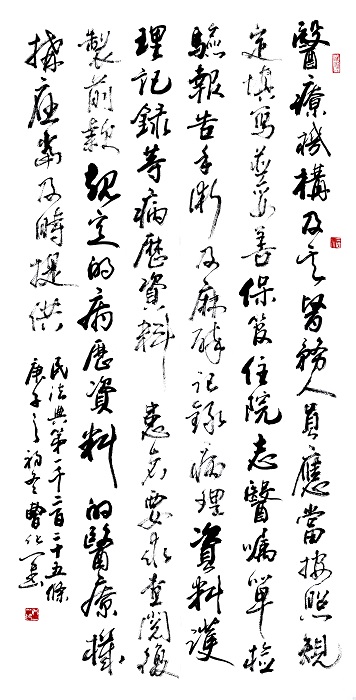 醫療機構及其醫務人員應當按照規
定填寫並妥善保管住院志醫囑單檢
驗報告手術及麻醉記錄病理資料護
理記錄等病歷資料 患者要求查閱復
製前款規定的病歷資料的醫療機
構應當及時提供
民法典第一千二百二十五條
庚子之初冬曹化一